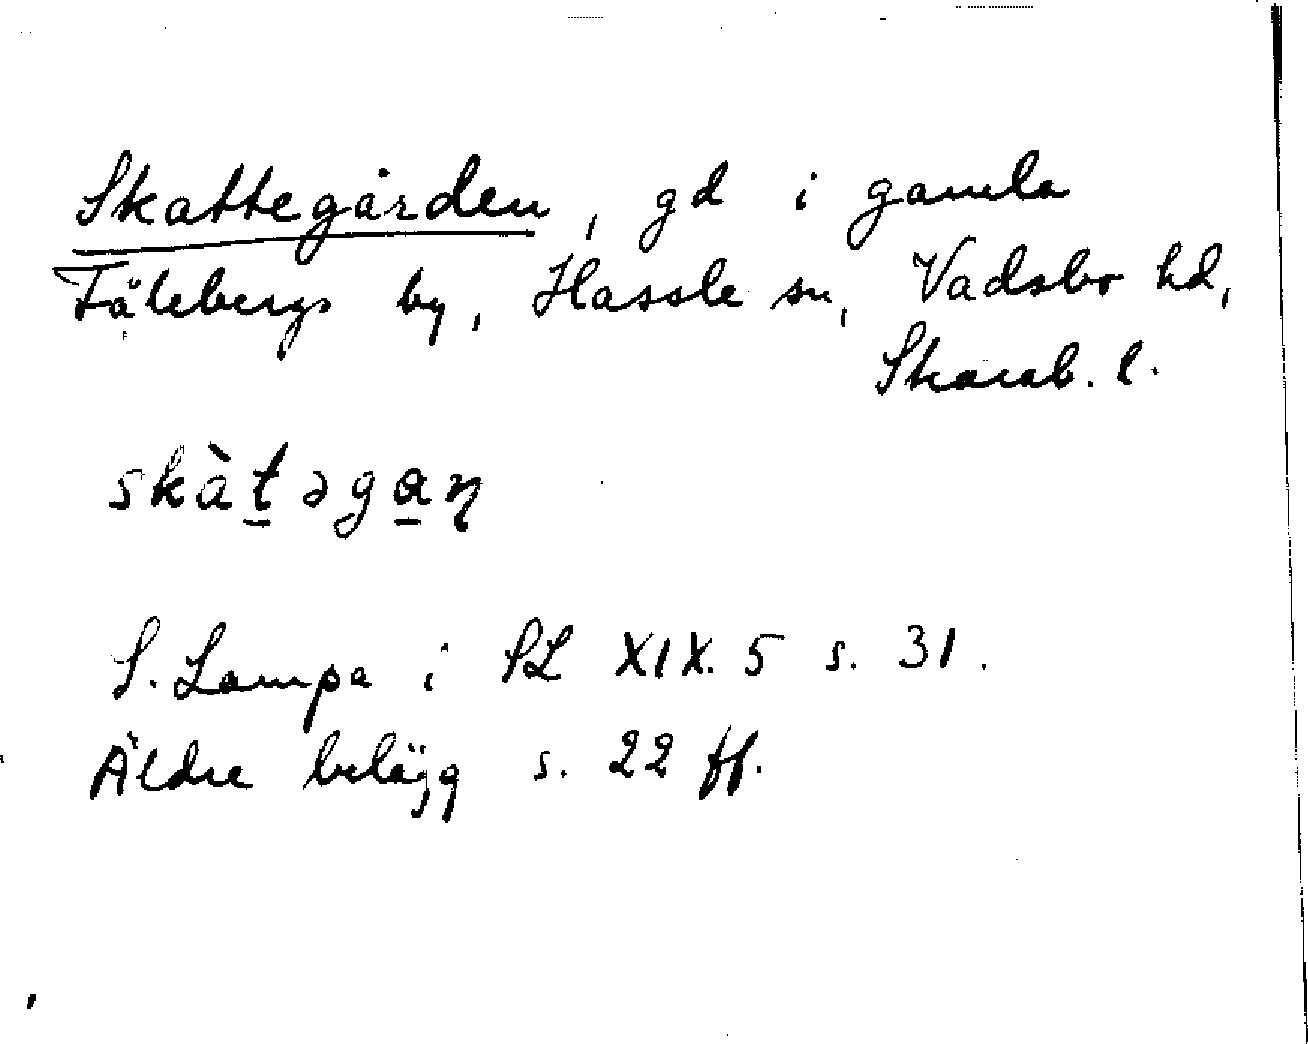 Skattegården, gd i gamla
Fälebergs by, Hassle sn, Vadsbo hd,
Skarab. l.
skàt̲əga̲n̡
S. Lampa i SL XIX. 5 s. 31.
Äldre belägg s. 22 ff.